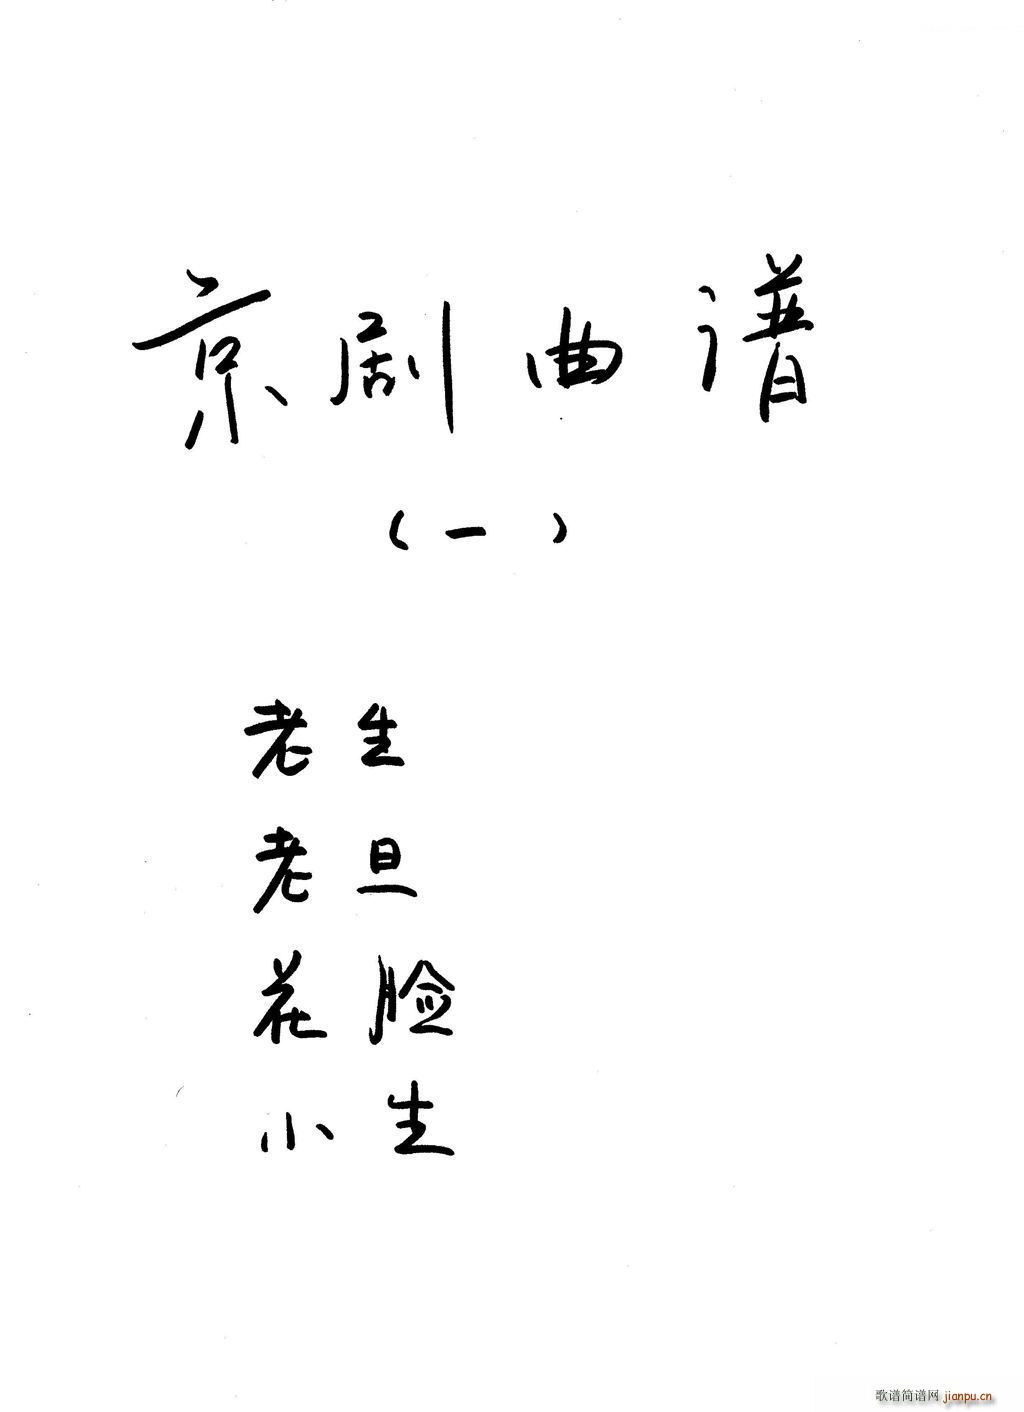 京剧曲谱
（一）
老生
老旦
花脸
小生
歌谱简谱网 jianpu.cn